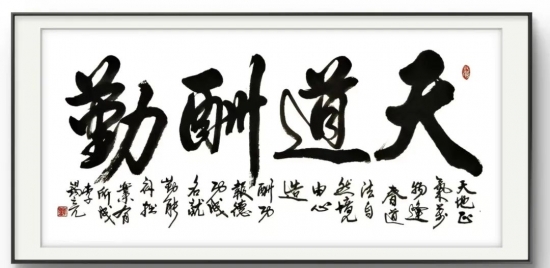 天道酬勤
天地正
氣萬
物逢
春道
法自
然境
由心
造
酬功
報德
功成
名就
勤能
補拙
業有
所成
李